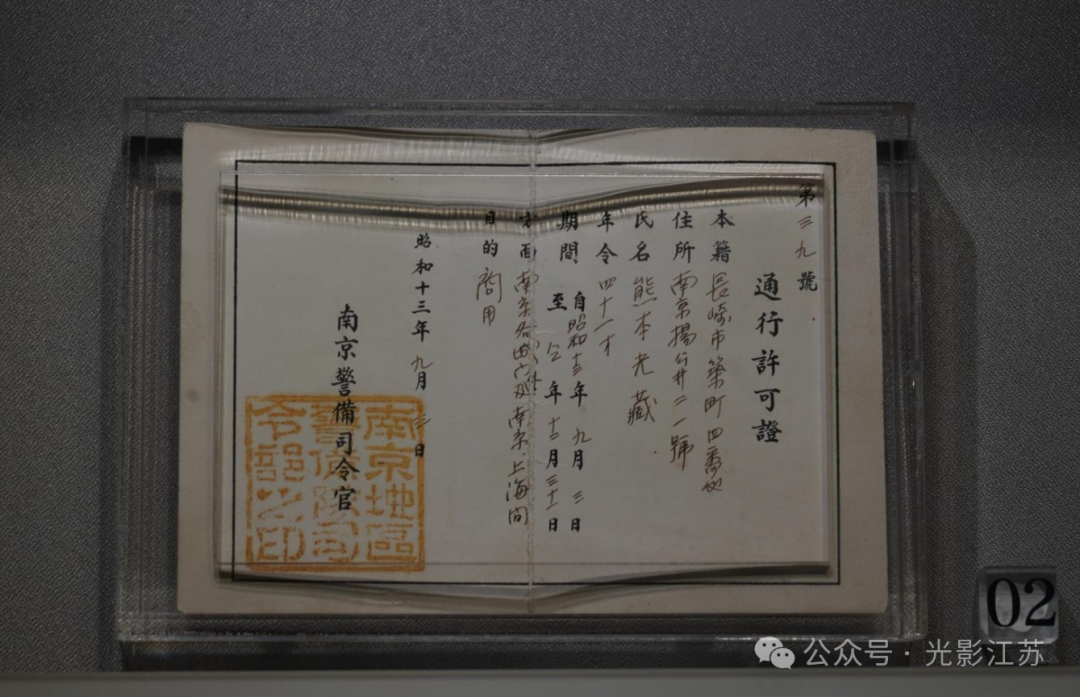 第三九號
通行許可證
本籍 長崎市築町四番地
住所 南京揚公井二一號
氏名 熊本光藏
年令 四十一才
期間 自昭和十三年九月三日
至仝年十二月三十一日
方面 南京各城門及南京上海間
目的 商用
昭和十三年九月三日
南京警備司令官
南京地區警備隊司令部之印
02
公众号·光影江苏